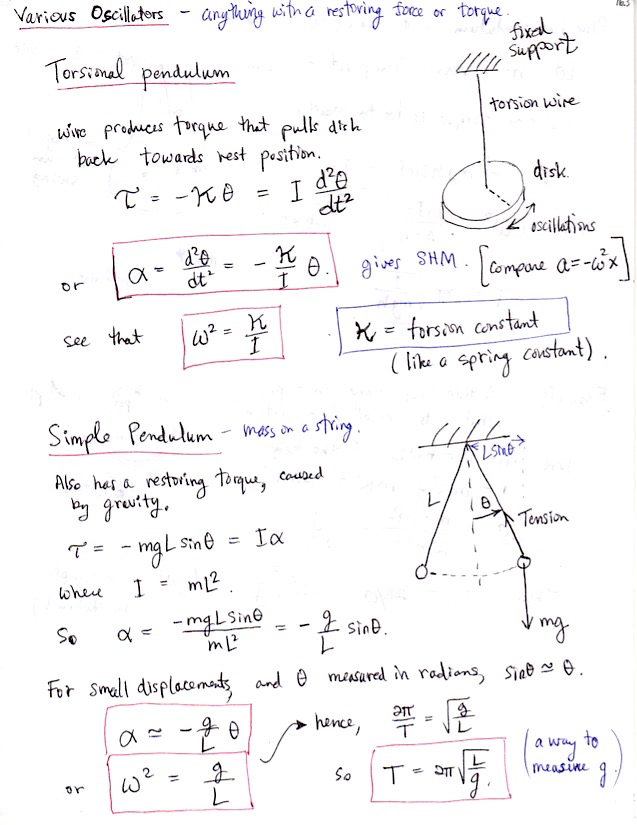 Various Oscillators - anything with a restoring force or torque.
Torsional pendulum
fixed
support
torsion wire
wire produces torque that pulls disk
back towards rest position.
τ = -κθ = I d²θ/dt²
disk.
oscillations
or α = d²θ/dt² = - κ/I θ. gives SHM. [compare a=-ω²x]
see that ω² = κ/I κ = torsion constant
(like a spring constant).
Simple Pendulum - mass on a string.
Lsinθ
Also has a restoring torque, caused
by gravity.
L
θ
Tension
τ = -mgL sinθ = Iα
where I = mL².
So α = -mgLsinθ/mL² = - g/L sinθ.
mg
For small displacements, and θ measured in radians, sinθ ≃ θ.
α ≃ - g/L θ hence, 2π/T = √(g/L)
or ω² = g/L so T = 2π√(L/g). (a way to
measure g.)